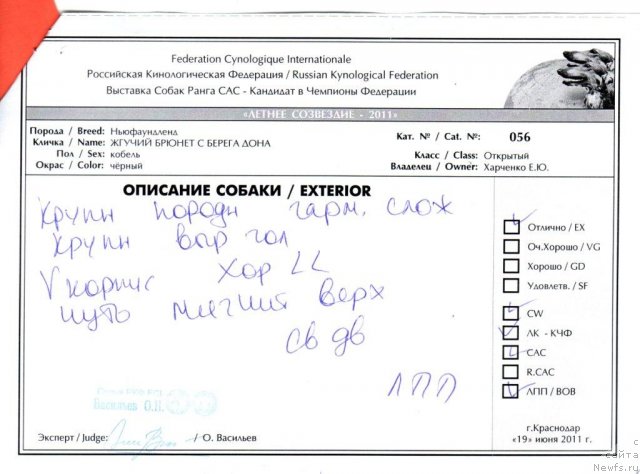 Federation Cynologique Internationale
Российская Кинологическая Федерация / Russian Kynological Federation
Выставка Собак Ранга САС - Кандидат в Чемпионы Федерации
«ЛЕТНЕЕ СОЗВЕЗДИЕ - 2011»
Порода / Breed: Ньюфаундленд
Кличка / Name: ЖГУЧИЙ БРЮНЕТ С БЕРЕГА ДОНА
Пол / Sex: кобель
Окрас / Color: чёрный
Кат. № / Cat. №: 056
Класс / Class: Открытый
Владелец / Owner: Харченко Е.Ю.
ОПИСАНИЕ СОБАКИ / EXTERIOR
крупн породн гарм. слож
крупн выр гол
V корпус хор LL
чуть мягкий верх
св дв
ЛПП
Отлично / EX
Оч.Хорошо / VG
Хорошо / GD
Удовлетв. / SF
CW
ЛК - КЧФ
CAC
R.CAC
ЛПП / BOB
Васильев О.
Эксперт / Judge: / О. Васильев
г.Краснодар
«19» июня 2011 г.
с
сайта
Newfs.ru